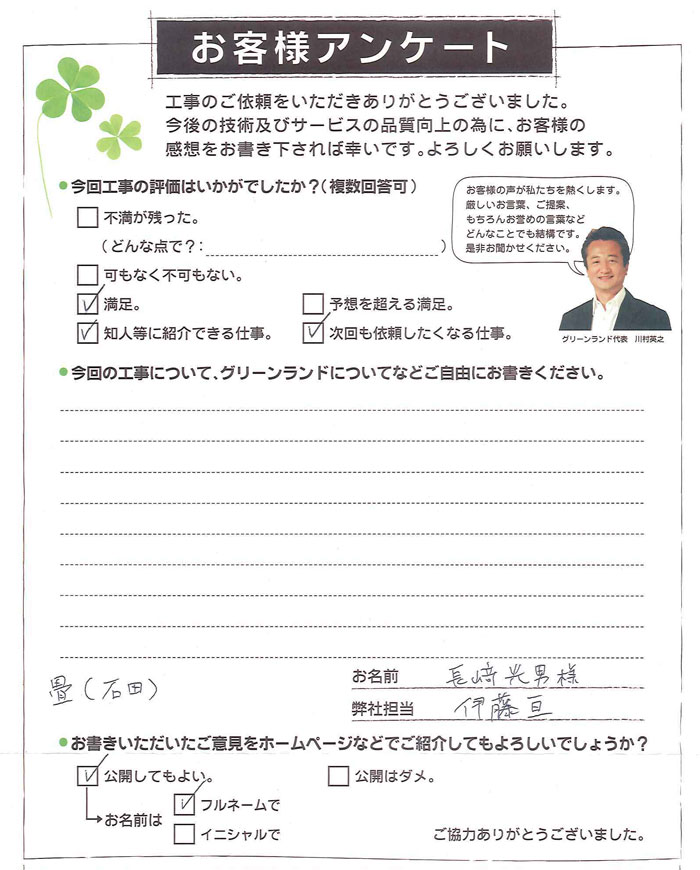 お客様アンケート
工事のご依頼をいただきありがとうございました。
今後の技術及びサービスの品質向上の為に、お客様の
感想をお書き下されば幸いです。よろしくお願いします。
今回工事の評価はいかがでしたか？（複数回答可）
お客様の声が私たちを熱くします。
厳しいお言葉、ご提案、
もちろんお誉めの言葉など
どんなことでも結構です。
是非お聞かせください。
不満が残った。
（どんな点で？： ）
可もなく不可もない。
満足。 予想を超える満足。
知人等に紹介できる仕事。 次回も依頼したくなる仕事。
グリーンランド代表 川村英之
今回の工事について、グリーンランドについてなどご自由にお書きください。
畳（石田）
お名前 長﨑光男様
弊社担当 伊藤亘
お書きいただいたご意見をホームページなどでご紹介してもよろしいでしょうか？
公開してもよい。 公開はダメ。
お名前は フルネームで
イニシャルで
ご協力ありがとうございました。